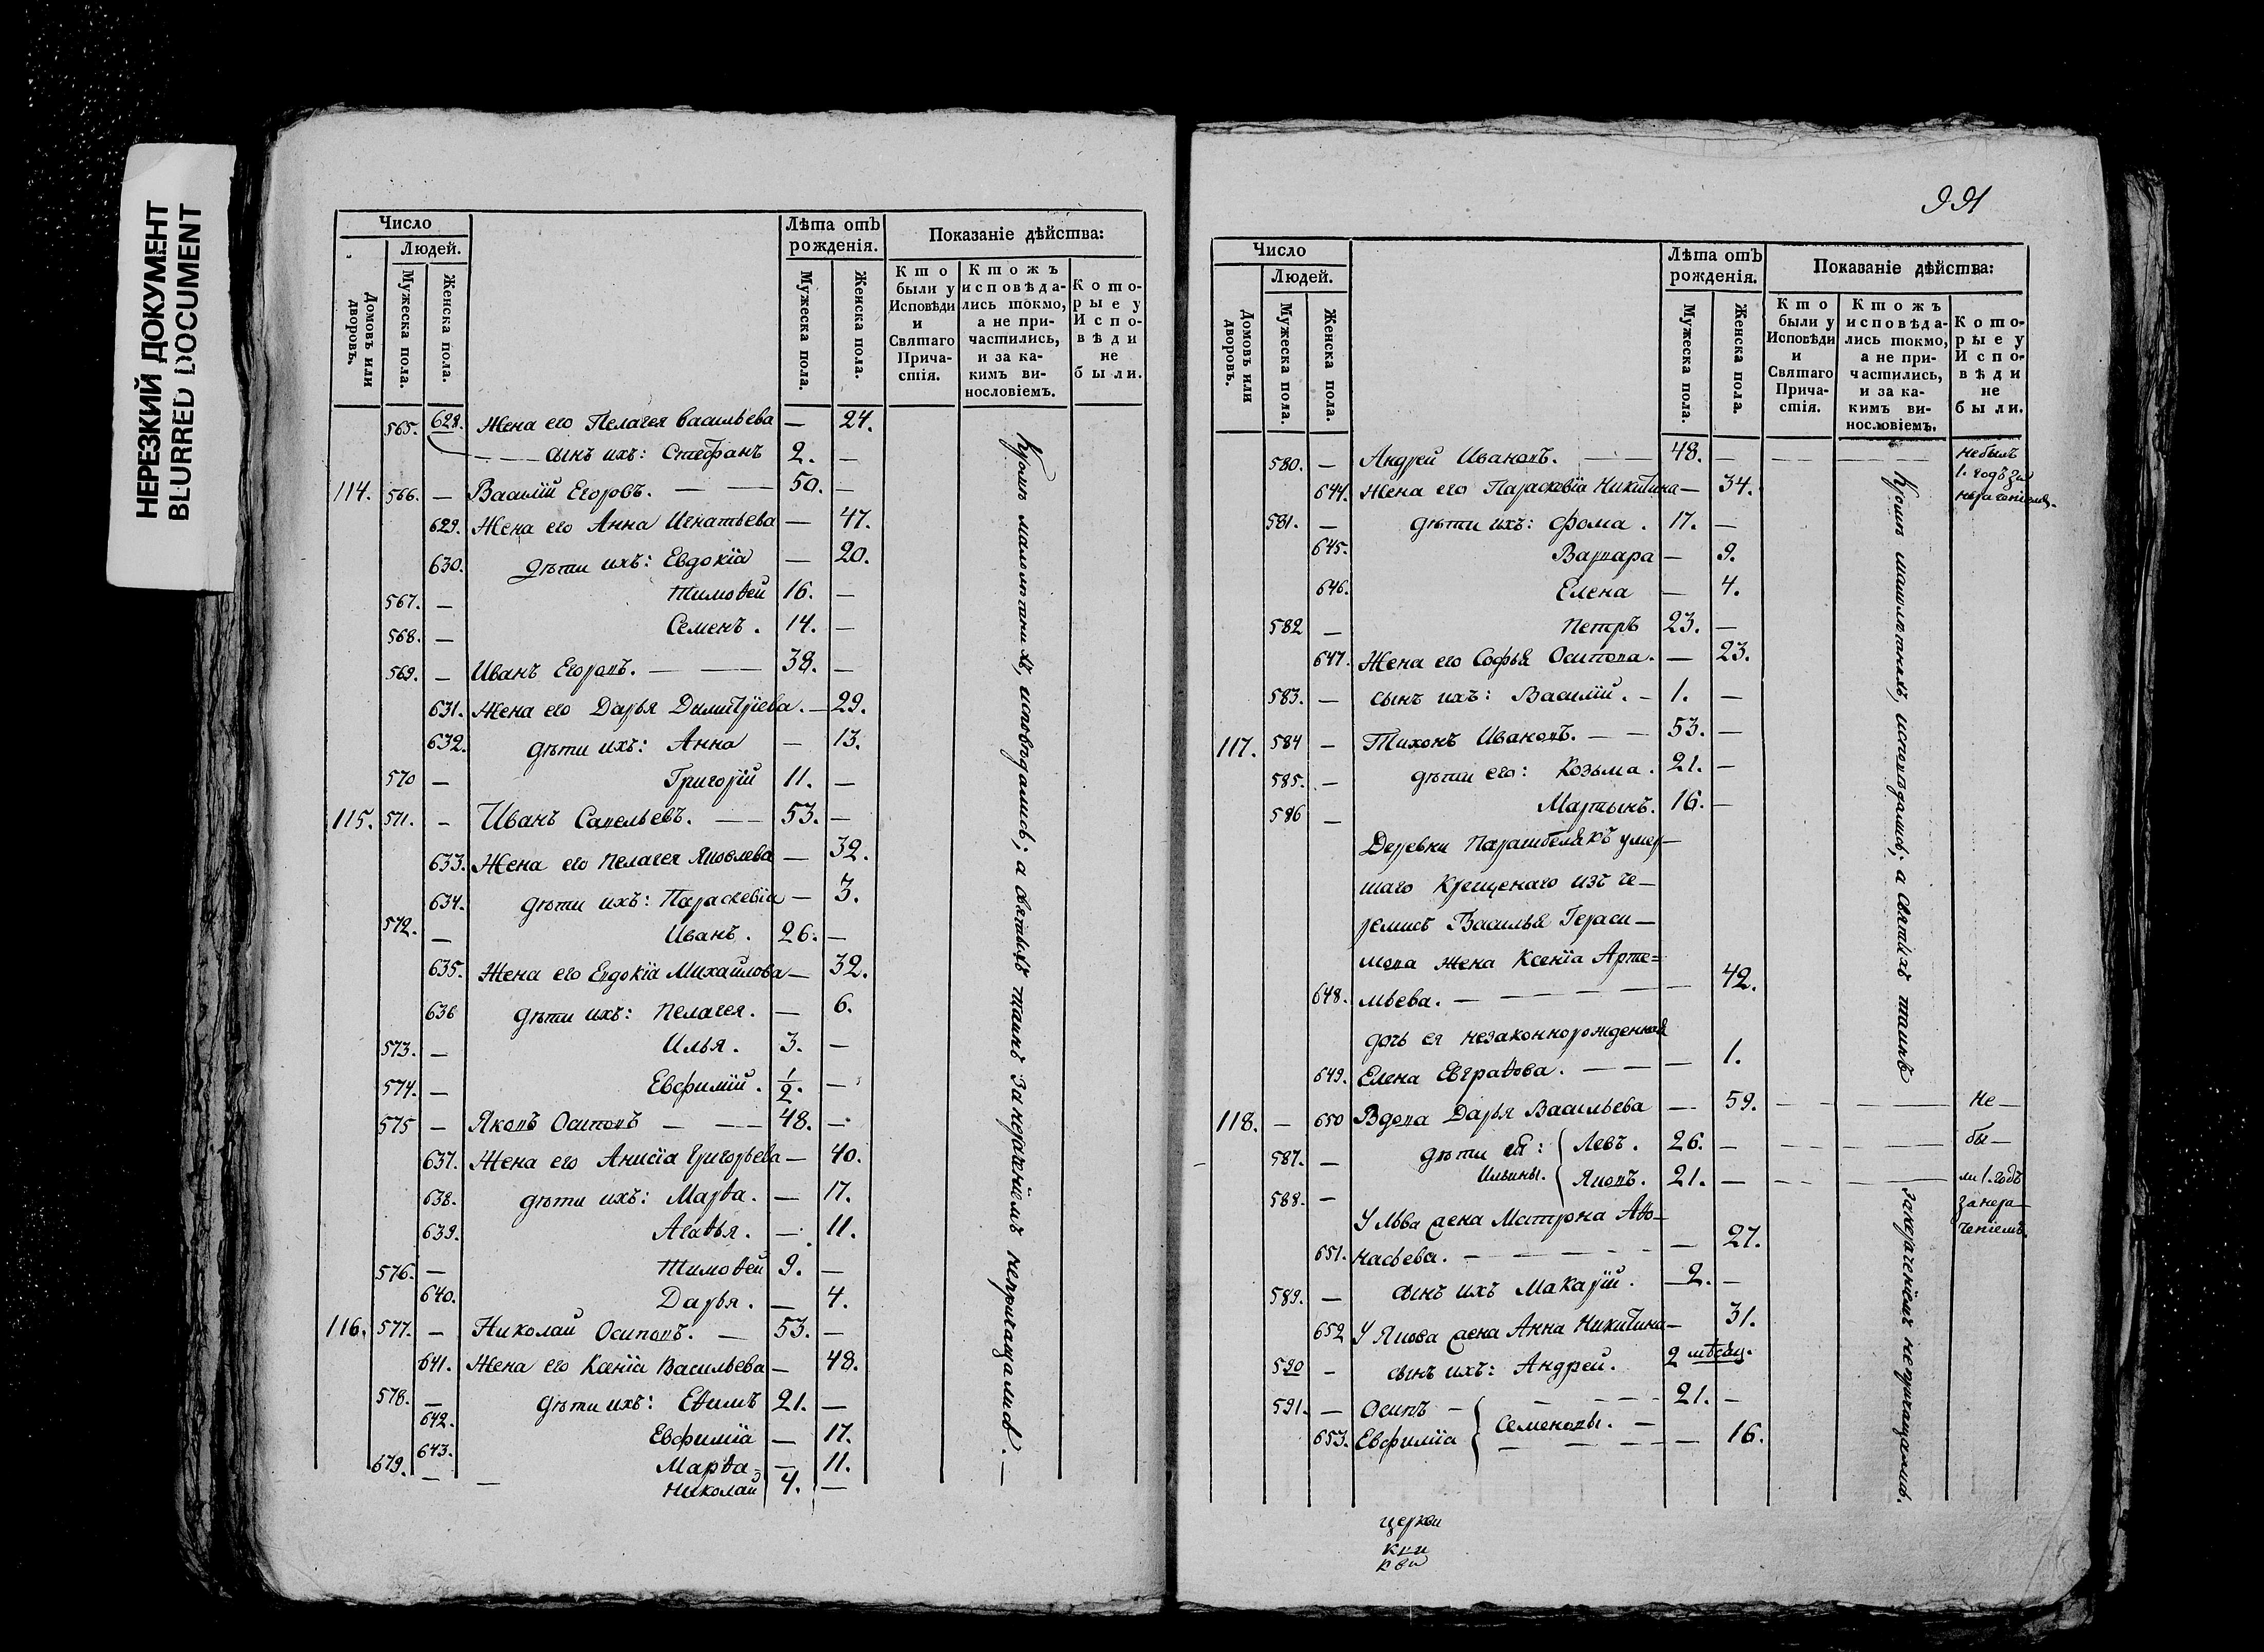 НЕРЕЗКИЙ ДОКУМЕНТ
BLURRED DOCUMENT
Число
Людей.
Домовъ или дворовъ.
Мужеска пола.
Женска пола.
Лѣта отъ рожденія.
Мужеска пола.
Женска пола.
Показаніе дѣйства:
Кто были у Исповѣди и Святаго Причастія.
Ктожъ исповѣдались токмо, а не причастились, и за какимъ винословіемъ.
Которые у Исповѣди не были.
565. 628. Жена его Пелагея Васильева — 24.
— — сынъ ихъ: Стефанъ 2. —
114. 566. — Василій Егоровъ. — — 50. —
629. Жена его Анна Игнатьева — 47.
630. дѣти ихъ: Евдокія — 20.
567. — Тимоѳей 16. —
568. — Семенъ. 14. —
569. — Иванъ Егоровъ. — — 38. —
631. Жена его Дарья Димитріева. — 29.
632. дѣти ихъ: Анна — 13.
570 — Григорій 11. —
115. 571. — Иванъ Савельевъ. — — 53. —
633. Жена его Пелагея Яковлева — 32.
634. дѣти ихъ: Параскевіа — 3.
572. — Иванъ. 26. —
635. Жена его Евдокіа Михайлова — 32.
636 дѣти ихъ: Пелагея. — 6.
573. — Илья. 3. —
574. — Евфимій. 1/2. —
575 — Яковъ Осиповъ — — — 48. —
637. Жена его Анисіа Григорьева — 40.
638. дѣти ихъ: Марѳа. — 17.
639. Агаѳья. — 11.
576. — Тимоѳей 9. —
640. Дарья. — 4.
116. 577. — Николай Осиповъ. — 53. —
641. Жена его Ксеніа Васильева — 48.
578. — дѣти ихъ: Еѳимъ 21. —
642. Евфиміа — 17.
643. Марѳа — 11.
679. — — Николай 4. —
Кромѣ малолѣтнихъ, исповѣдались; а святыхъ таинъ за нераченіемъ непричащались. —
991
Число
Людей.
Домовъ или дворовъ.
Мужеска пола.
Женска пола.
Лѣта отъ рожденія.
Мужеска пола.
Женска пола.
Показаніе дѣйства:
Кто были у Исповѣди и Святаго Причастія.
Ктожъ исповѣдались токмо, а не причастились, и за какимъ винословіемъ.
Которые у Исповѣди не были.
580. — Андрей Ивановъ. — — 48. — — — — — — небылъ
1. годъ за
нераченіемъ.
644. Жена его Параскевіа Никитина — 34.
581. — дѣти ихъ: Фома. 17. —
645. Варвара — 9.
646. Елена — 4.
582 — Петръ 23. —
647. Жена его Софья Осипова. — 23.
583. — сынъ ихъ: Василій. — 1. —
117. 584 — Тихонъ Ивановъ. — — 53. —
585. — дѣти его: Козьма. 21. —
586 — Мартынъ. 16. —
Деревни Парашбелякъ умер—
шаго крещенаго изъ че—
ремисъ Василья Гераси—
мова жена Ксеніа Арте=
648. мьева. — — — — — — 42.
дочь ея незаконнорожденная
649. Елена Евграѳова. — — — 1.
118. — 650 Вдова Дарья Васильева — 59. — — — — Не—
587. — дѣти ея: Левъ. 26. — — — — — бы—
588. — Ильины. Яковъ. 21. — — — — ли 1. годъ
за нера—
ченіемъ.
У Льва жена Матрона Аѳо—
651. насьева. — — — — — — 27.
589. — сынъ ихъ Макарій. — 2. —
652 У Якова жена Анна Никитина — 31.
590 — сынъ ихъ: Андрей. 2 мѣсяц.
591. — Осипъ — — — — 21. —
Семеновы. —
653. Евфиміа — — — — — 16.
Кромѣ малолѣтнихъ, исповѣдались; а святыхъ таинъ
за нераченіемъ непричащались.
церкви